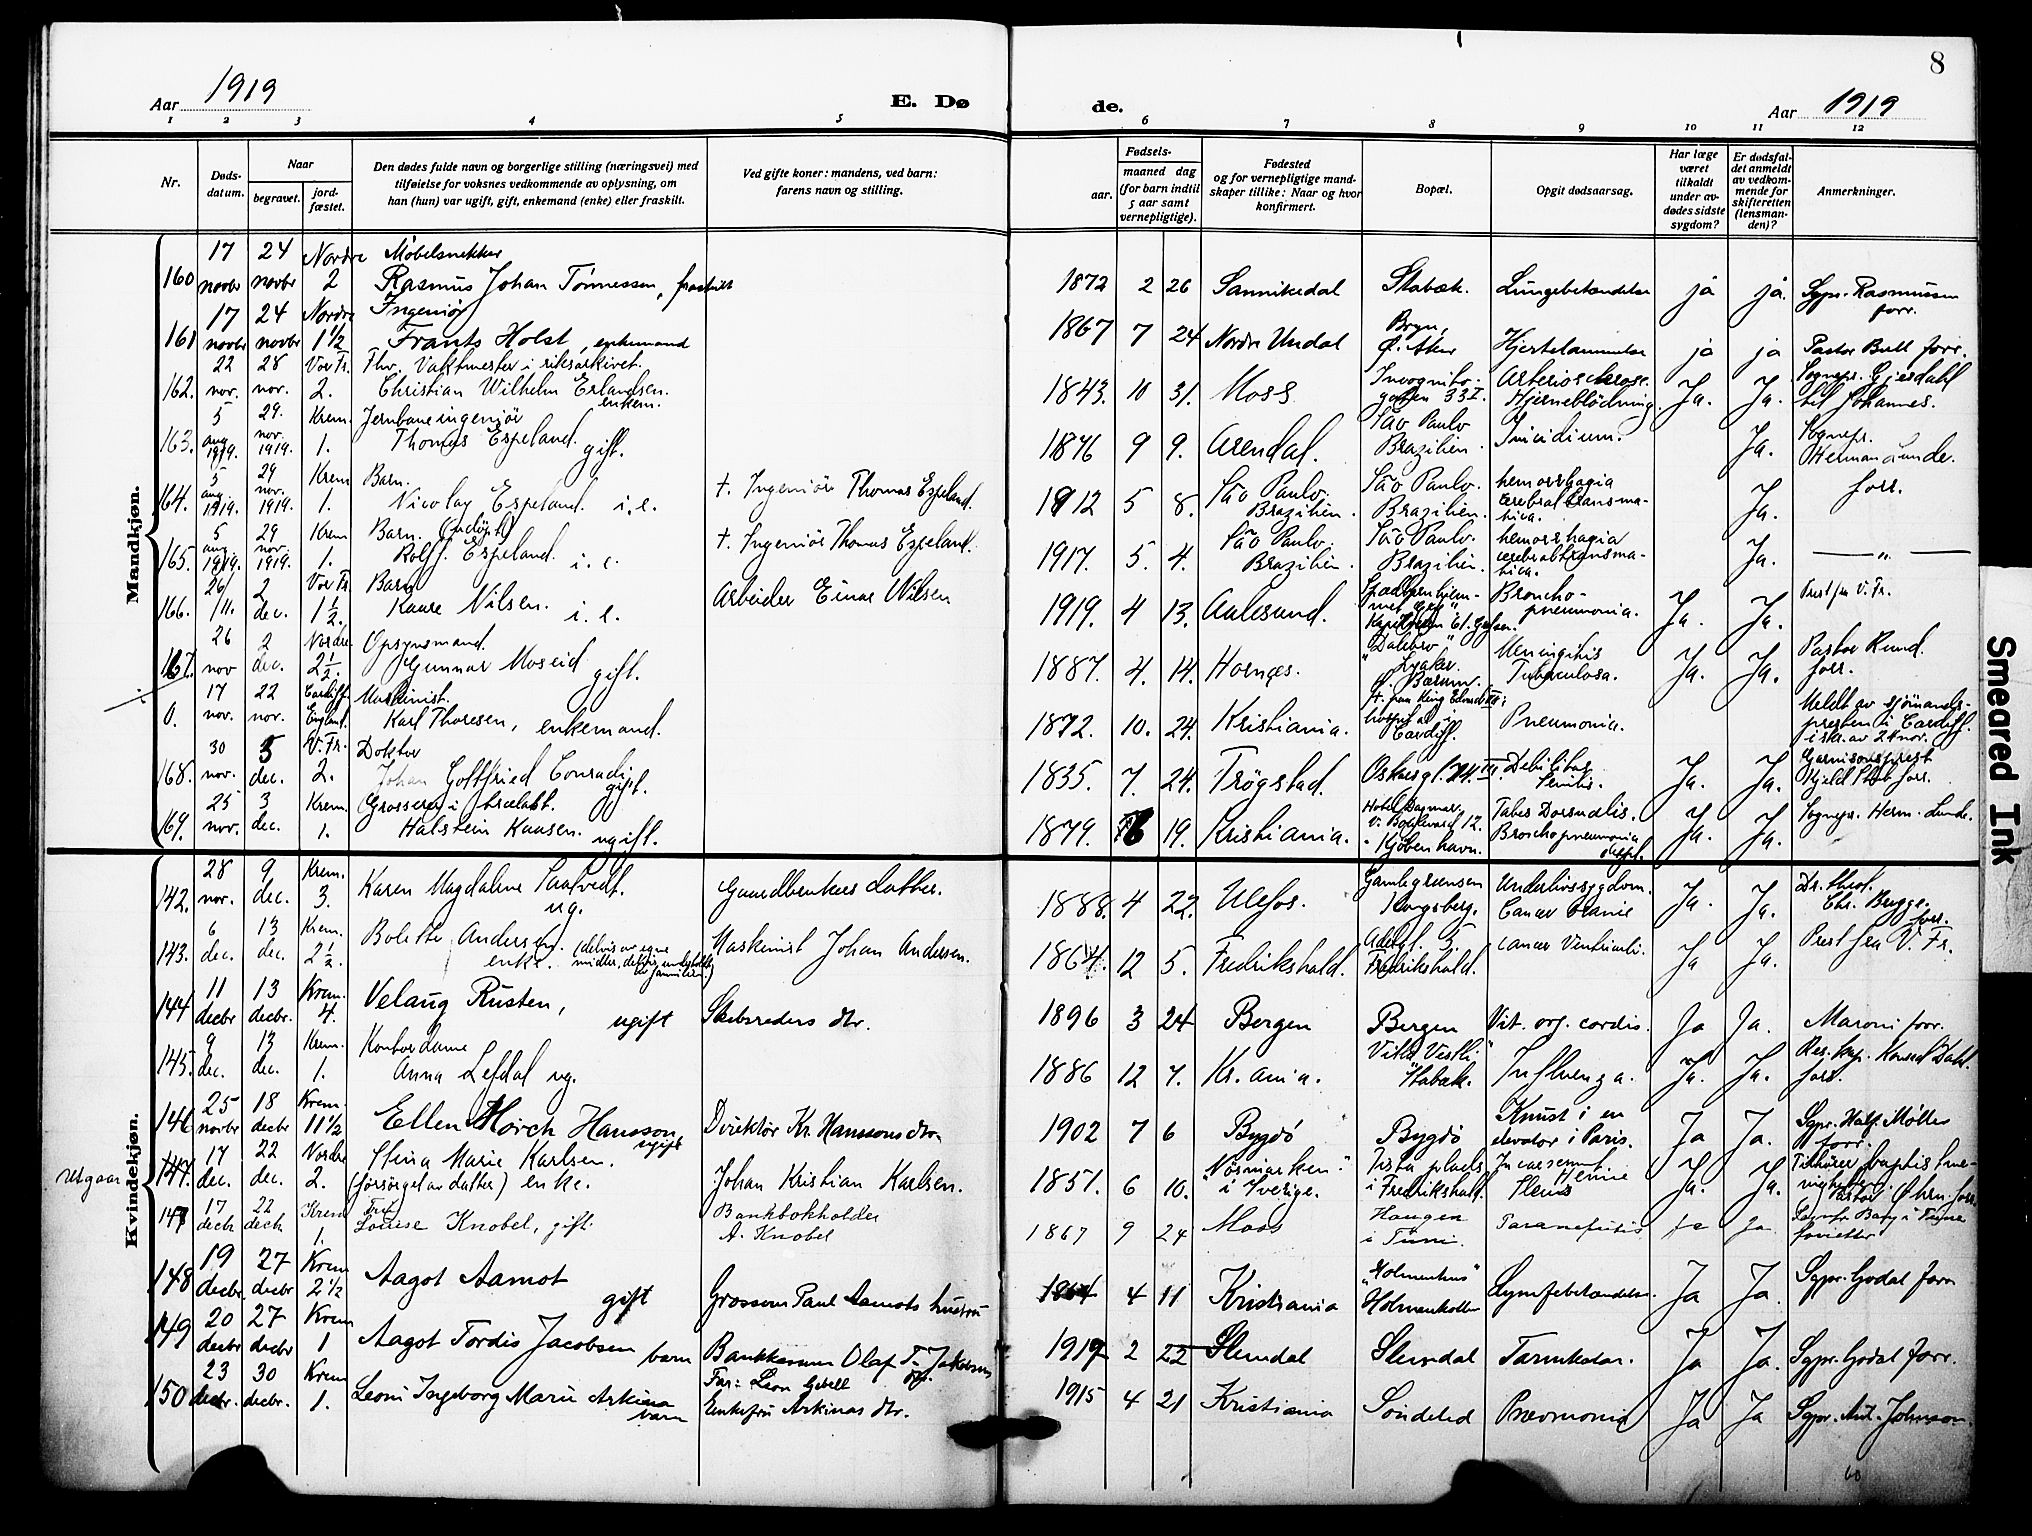 8
Aar 1919
E. Dø
de.
Aar 1919
1 2 3 4 5 6 7 8 9 10 11 12
Nr.
Døds-
datum.
Naar
begravet.
jord-
fæstet.
Den dødes fulde navn og borgerlige stilling (næringsvei) med
tilføielse for voksnes vedkommende av oplysning, om
han (hun) var ugift, gift, enkemand (enke) eller fraskilt.
Ved gifte koner: mandens, ved barn:
farens navn og stilling.
Fødsels-
aar.
maaned dag
(for barn indtil
5 aar samt
vernepligtige).
Fødested
og for vernepligtige mand-
skaper tillike: Naar og hvor
konfirmert.
Bopæl.
Opgit dødsaarsag.
Har læge
været
tilkaldt
under av-
dødes sidste
sygdom?
Er dødsfal-
det anmeldt
av vedkom-
mende for
skifteretten
(lensman-
den)?
Anmerkninger.
Mandkjøn.
17 24 Nordre Møbelsnekker
160 novbr novbr 2 Rasmus Johan Tønnessen, fraskilt 1872 2 26 Sannikedal Stabæk. Lungebetændelse ja ja. Sgpr. Rasmussen
forr.
17 24 Nordre Ingeniør
161 novbr novbr 1 1/2 Frants Holst, enkemand 1867 7 24 Nordre Undal Bryn, Ø. Aker Hjertelammelse ja ja Pastor Bull forr.
22 28 Vor Fr. Fhv. Vaktmester i riksarkivet.
162. nov. nov. 2. Christian Wilhelm Erlandsen. enkem. 1843. 10 31. Moss. Incognito-gaten 33 I. Arteriosclerose. Hjerneblødning. Ja. Ja. Sognepr. Gjerdahl
til Johannes.
5 29. Krem. Jernbaneingeniør
163. aug. 1919. nov. 1919. 1. Thomas Espeland. gift. 1876 9 9. Arendal. São Paulo Brazilien. Suicidium. Ja. Sognepr.
Herman Lunde.
forr.
5 29 Krem. Barn.
164. aug. 1919. nov. 1919. 1. Nicolay Espeland. i.e. †. Ingeniör Thomas Espeland. 1912 5 8. São Paulo. Brazilien. São Paulo. Brazilien. hemorrhagia cerebral transma-tica. Ja.
5 29 Krem Barn. (udöpt)
165. aug. 1919. nov. 1919. 1. Rolf. Espeland. i.e. †. Ingeniör Thomas Espeland. 1917. 5. 4. São Paulo. Brazilien São Paulo. Brazilien. hemorrhagia cerebral transma-tica. Ja. — „ —
26 2 Vor Fr. Barn
166. /11. dec. 1 1/2. Kaare Nilsen. i.e. Arbeider Einar Nilsen 1919. 4 13. Aalesund. Broncho-pneumonia. Ja. Ja. Prest fra V. Fr.
26 2 Nordre. Opsynsmand.
167. nov dec. 2 1/2. Gunnar Moseid gift. 1887. 4. 14. Hornes. "Dalebro" Lysaker. Ø. Bærum. Meningitis Tuberculosa. Ja. Ja. Pastor Rund.
forr.
17 22 Cardiff Maskinist.
0. nov. nov. England. Karl Thoresen, enkemand. 1872. 10. 24. Kristiania. hospital i Cardiff. Pneumonia. Meldt av sjömands-
presten i Cardiff.
i skr. av 24 nov.
30 5 V. Fr. Doktor
168. nov. dec. 2. Johan Gottfried Conradi gift. 1835. 7. 24. Trögstad. Oskarsgt. 24. III. Debilitas Senilis. Ja. Ja. Garnisonsprest
Kjeld Stub forr.
25 3 Krem. Grosserer i trælast.
169. nov. dec. 1. Halstein Kaasen. ugift. 1879. 6 19. Kristiania. Hotel Dagmar. V. Boulevard 12. Kjöbenhavn. Tabes Dorsualis. Bronchopneumonia dupl. Ja. Ja. Sognepr. Herm. Lunde.
Kvindekjøn.
28 9 Krem.
142. nov. dec. 3. Karen Magdalene Saatvedt. ug. Gaardbrukers datter. 1888. 4 22. Ulefos. Gamlegrænsen Kongsberg. Underlivssygdom. Cancer Ovarie Ja. Ja. Dr. theol.
Chr. Brygge.
forr.
6 13 Krem.
143. dec. dec. 2 1/2. Bolette Andersen. enke. (delvis av egne midler, delvis underholdt av familien.) Maskinist Johan Andersen. 1864. 12 5. Fredrikshald. Adelgt. 5. Fredrikshald. Cancer Ventriculi. Ja Ja. Prest fra V. Fr.
11 13 Krem.
144 decbr decbr. 4. Velaug Rusten, ugift Skibsreders dtr. 1896 3 24 Bergen Bergen Vit. org. cordis. Ja Ja. Maroni forr.
9 13 Krem. Kontordame
145. dec. dec. 1. Anna Lefdal ug. 1886 12 7. Kr.ania. Villa "Vestli" Stabæk. Influenza. Ja. Ja. Res. kap. Konrad Dahl.
forr.
25 18 Krem.
146 novbr decbr 11 1/2 Ellen Mörch Hansson ugift Direktør Kr. Hanssons dtr. 1902 7 6 Bygdö Bygdö Knust i en elevator i Paris. Ja Ja. Sgpr. Half. Møller
forr.
17 22 Nordre
Utgaar 147. dec. dec. 2. Stina Marie Karlsen. (forsörget av datter) enke. Johan Kristian Karlsen. 1851. 6 10. "Nösmarken" i Sverige. Tista plads i Fredrikshald. Incarserert Hernie Ileus Ja. Ja. Tilhörer baptistme-
nigheten.
Pastor Öhrn forr.
17 22 Krem Fru
147 decbr decbr 1. Louise Knobel, gift. Bankbokholder A. Knobel 1867 9 24 Moss Haugen i Tune. Paranefritis ja Ja. Sognepr. Bang i Tune
forretter
19 27 Krem
148 decbr decbr 2 1/2 Aagot Aamot gift Grosserer Paul Aamots hustru 1864 4 11 Kristiania "Holmenhus" Holmenkollen Lymfebetændelse. Ja Ja. Sgpr. Godal forr
20 27 Krem
149 decbr decbr 1 Aagot Tordis Jacobsen barn Bankkasserer Olaf T. Jakobsen 1919 2 22 Slemdal Slemdal Tarmkatar. Ja Ja Sgpr. Godal forr.
23 30 Krem
150 decbr. decbr. 1. Leoni Ingeborg Marie Arkina barn Far: Leon Gebell Enkefru Arkinas dtr. 1915 4 21 Kristiania Söndeled Pneumonia Ja Ja Sgpr. Ant. Johnson.
60
Smeared Ink